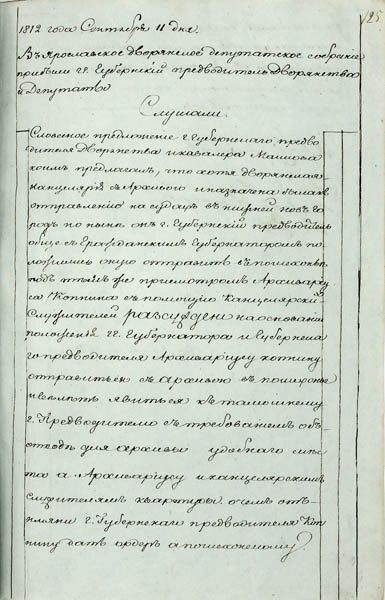 125
1812 года Сентября 11 дня.
Въ Ярославское дворянское депутатское собрание
прибыли гг. Губернский предводитель Дворянства
и Депутаты
Слушали.
Словесное предложение г. Губернского предво
дителя Дворянства и кавалера Майкова
коим предложил, что хотя дворянская
канцелярия с Архивою и назначена была къ
отправлению на судахъ в нижней новъ го
родъ но ныне онъ г. Губернский предводитель
обще с Гражданским Губернатором по
ложились оную отправить в пошехонье
подъ темъ же присмотром Архивариу
са Копнина с помощию Канцелярских
Служителей разсужден на основании
положения гг. Губернатора и Губернска
го предводителя Архивариусу копнину
отправиться с архивою в пошехонье
и велеть явиться к тамошнему
г. Предводителю с требованием объ
отводе для архивы удобнаго мес
та а Архивариусу и канцелярским
служителям квартиры о чем отъ
имяни г. Губернскаго предводителя Коп
нину дать ордер а пошехонскому